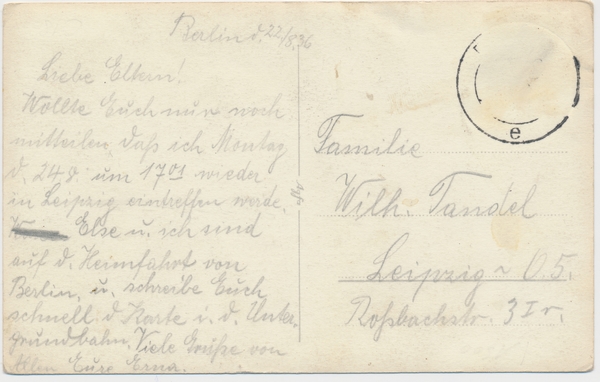 Berlin d. 22/8.36
Liebe Eltern!
Wollte Euch nur noch
mitteilen daß ich Montag
d. 24.8. um 17⁰¹ wieder
in Leipzig eintreffen werde.
Else u. ich sind
auf d. Heimfahrt von
Berlin, u. schreibe Euch
schnell d. Karte i. d. Unter-
grundbahn. Viele Grüße von
Allen Eure Erna.
e
Familie
Wilh. Tandel
Leipzig ~ O 5.
Roßbachstr. 3 I r.